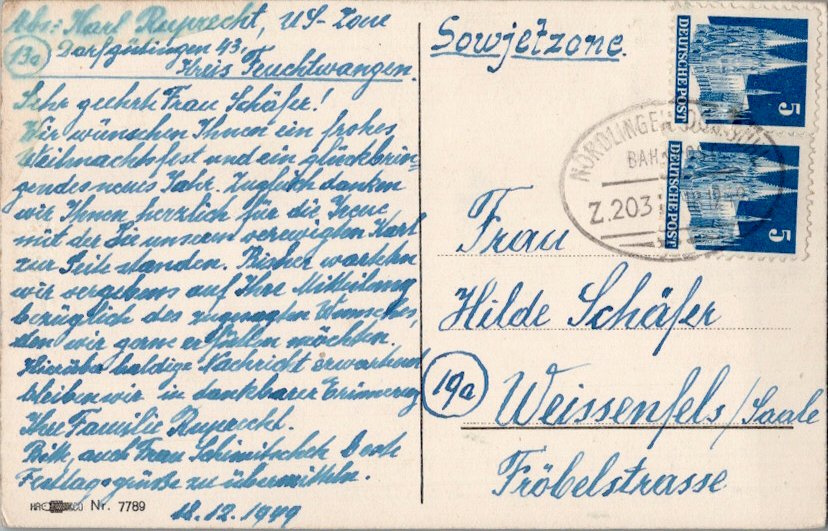 Abs: Karl Ruprecht, US-Zone
13a Dorfgütingen 43,
Kreis Feuchtwangen.
Sehr geehrte Frau Schäfer!
Wir wünschen Ihnen ein frohes
Weihnachtsfest und ein glückbrin-
gendes neues Jahr. Zugleich danken
wir Ihnen herzlich für die Treue
mit der Sie unserem verewigten Karl
zur Seite standen. Bisher warteten
wir vergebens auf Ihre Mitteilung
bezüglich des zugesagten Wunsches,
den wir gerne erfüllen möchten.
Hierüber baldige Nachricht erwartend
bleiben wir in dankbarer Erinnerung
Ihre Familie Ruprecht.
Bitte, auch Frau Schimitschek beste
Festtagsgrüße zu übermitteln.
18.12.1949
Nr. 7789
Sowjetzone.
DEUTSCHE POST
5
DEUTSCHE POST
5
NÖRDLINGEN
BAH
Z.203
Frau
Hilde Schäfer
19a Weissenfels/Saale
Fröbelstrasse